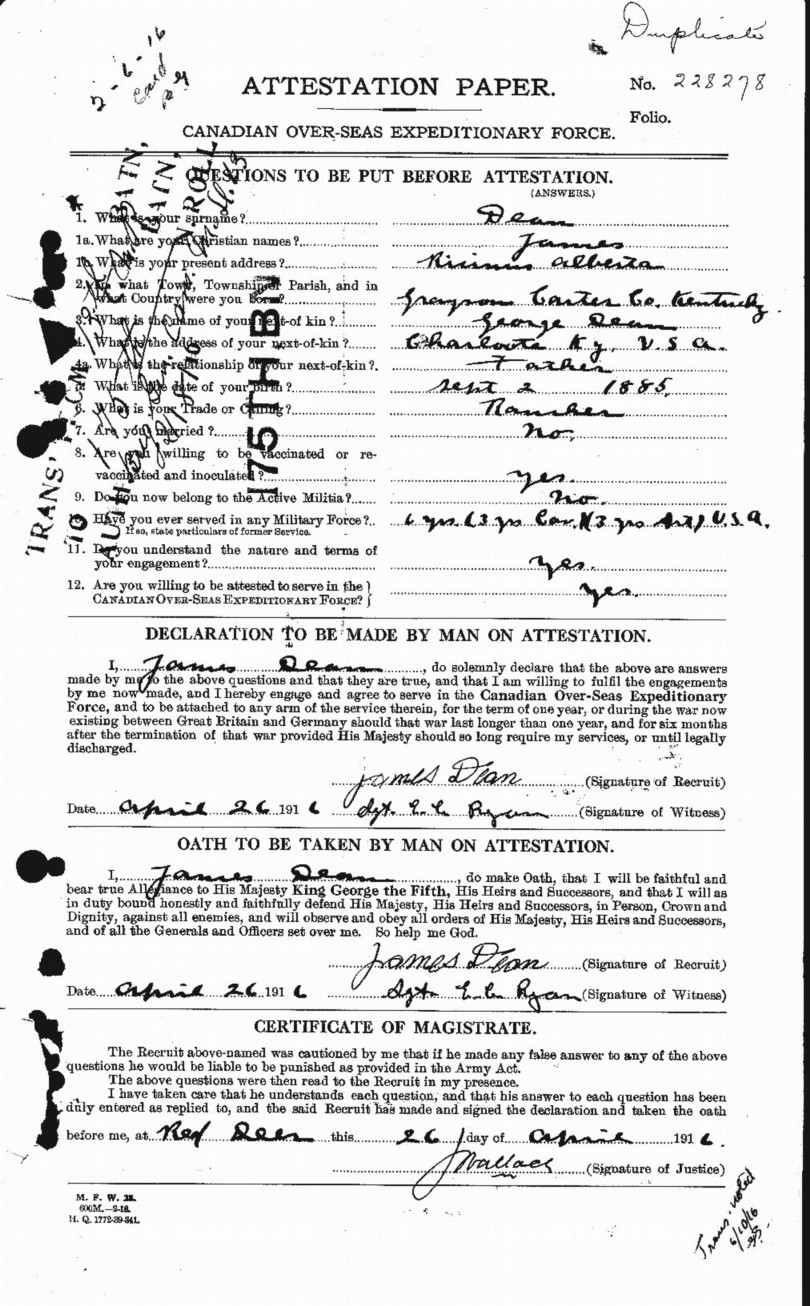 Duplicate
2-6-16
Card
ATTESTATION PAPER.
No. 228278
Folio.
CANADIAN OVER-SEAS EXPEDITIONARY FORCE.
QUESTIONS TO BE PUT BEFORE ATTESTATION.
(ANSWERS.)
1. What is your surname? Dean
1a. What are your Christian names? James
1b. What is your present address? Ricinus Alberta
2. In what Town, Township or Parish, and in
what Country were you born? Grayson Carter Co. Kentucky.
3. What is the name of your next-of kin? George Dean
4. What is the address of your next-of-kin? Ky, U.S.A.
4a. What is the relationship of your next-of-kin? Father
5. What is the date of your birth? Sept 2 1885.
6. What is your Trade or Calling? Rancher
7. Are you married? No.
8. Are you willing to be vaccinated or re-
vaccinated and inoculated? yes.
9. Do you now belong to the Active Militia? No.
10. Have you ever served in any Military Force? 6 yrs. (3 yrs Cav.)(3 yrs Art) U.S.A.
If so, state particulars of former Service.
11. Do you understand the nature and terms of
your engagement? yes.
12. Are you willing to be attested to serve in the
CANADIAN OVER-SEAS EXPEDITIONARY FORCE? yes.
TRANS'
TO
175TH B
DECLARATION TO BE MADE BY MAN ON ATTESTATION.
I, James Dean, do solemnly declare that the above are answers
made by me to the above questions and that they are true, and that I am willing to fulfil the engagements
by me now made, and I hereby engage and agree to serve in the Canadian Over-Seas Expeditionary
Force, and to be attached to any arm of the service therein, for the term of one year, or during the war now
existing between Great Britain and Germany should that war last longer than one year, and for six months
after the termination of that war provided His Majesty should so long require my services, or until legally
discharged.
James Dean (Signature of Recruit)
Date April 26 1916 Sgt. E. C. Ryan (Signature of Witness)
OATH TO BE TAKEN BY MAN ON ATTESTATION.
I, James Dean, do make Oath, that I will be faithful and
bear true Allegiance to His Majesty King George the Fifth, His Heirs and Successors, and that I will as
in duty bound honestly and faithfully defend His Majesty, His Heirs and Successors, in Person, Crown and
Dignity, against all enemies, and will observe and obey all orders of His Majesty, His Heirs and Successors,
and of all the Generals and Officers set over me. So help me God.
James Dean (Signature of Recruit)
Date April 26 1916 Sgt. E. C. Ryan (Signature of Witness)
CERTIFICATE OF MAGISTRATE.
The Recruit above-named was cautioned by me that if he made any false answer to any of the above
questions he would be liable to be punished as provided in the Army Act.
The above questions were then read to the Recruit in my presence.
I have taken care that he understands each question, and that his answer to each question has been
duly entered as replied to, and the said Recruit has made and signed the declaration and taken the oath
before me, at Red Deer this 26 day of April 1916.
J Wallace (Signature of Justice)
M. F. W. 23.
600M.—2-16.
H. Q. 1772-39-841.
Trans. noted
6/10/16